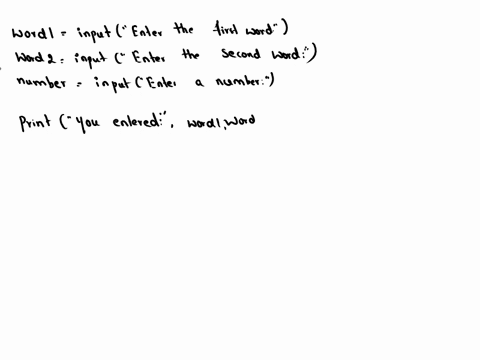 word1 = input ("Enter the first word")
word2 = input ("Enter the second word:")
number = input ("Enter a number:")
Print ("You entered:", word1, word